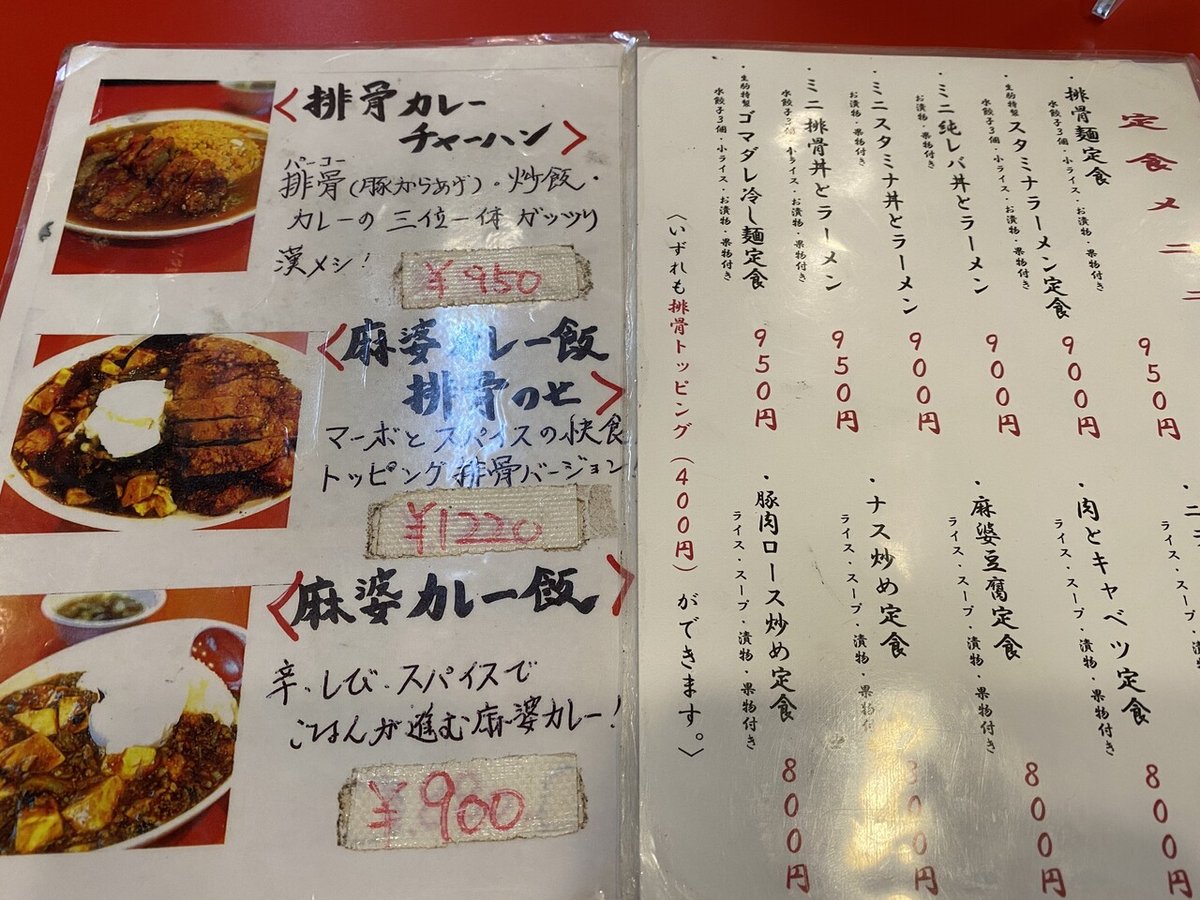 <排骨カレー
チャーハン>
パーコー
排骨(豚からあげ)・炒飯・
カレーの三位一体 ガッツリ
漢メシ!
¥950
<麻婆カレー飯
排骨のせ>
マーボとスパイスの快食
トッピング排骨バージョン!
¥1220
<麻婆カレー飯>
辛、しび、スパイスで
ごはんが進む麻婆カレー!
¥900
定食メニュー
・排骨麺定食
水餃子3個・小ライス・お漬物・果物付き
950円
・生駒特製 スタミナラーメン定食
水餃子3個・小ライス・お漬物・果物付き
900円
・ミニ純レバ丼とラーメン
お漬物・果物付き
900円
・ミニスタミナ丼とラーメン
お漬物・果物付き
900円
・ミニ排骨丼とラーメン
水餃子3個・小ライス・お漬物・果物付き
950円
・生駒特製 ゴマダレ冷し麺定食
水餃子3個・小ライス・お漬物・果物付き
950円
〈いずれも排骨トッピング(400円)ができます。〉
ライス・スープ
800円
・肉とキャベツ定食
ライス・スープ・漬物・果物付き
800円
・麻婆豆腐定食
ライス・スープ・漬物・果物付き
800円
・ナス炒め定食
ライス・スープ・漬物・果物付き
800円
・豚肉ロース炒め定食
ライス・スープ・漬物・果物付き